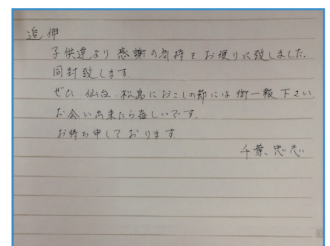 追伸
子供達より感謝の気持をお便りに致しました。
同封致します
ぜひ 仙台、松島におこしの節には御一報下さい
お会い出来たら嬉しいです。
お待ち申しております
千葉、